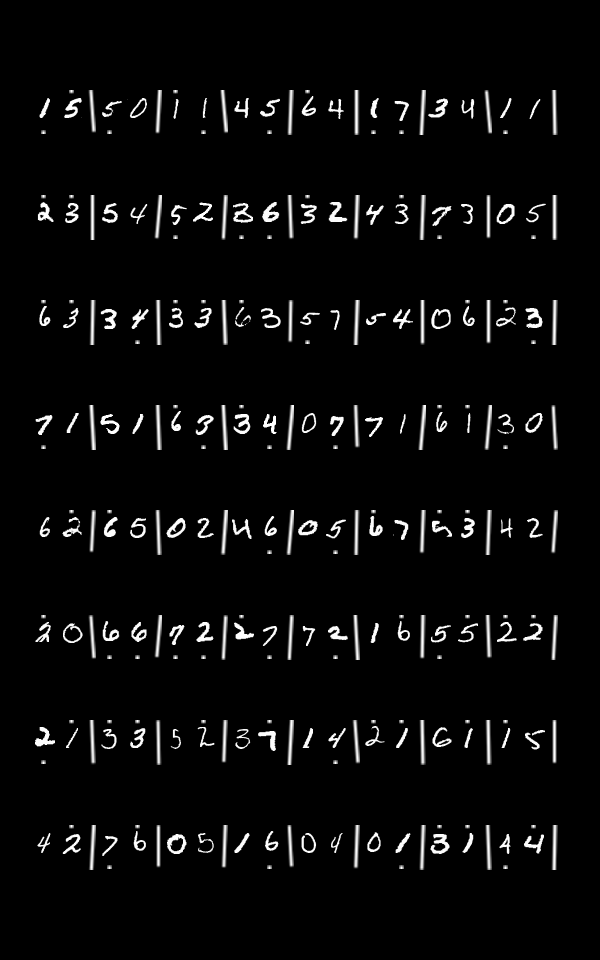 1̣ 5̇ | 5̣ 0 | 1̇ 1̣ | 4 5̣ | 6̇ 4 | 1̣ 7̣ | 3 4 | 1̣ 1 |
2̇ 3̇ | 5 4 | 5̣ 2 | 3̣ 6̣ | 3̇ 2 | 4 3̇ | 7̣ 3 | 0 5̣ |
6̇ 3̇ | 3 4̣ | 3̇ 3̇ | 6̇ 3 | 5̣ 7 | 5 4 | 0 6̇ | 2̇ 3̣ |
7̣ 1 | 5 1 | 6̇ 3̣ | 3 4̣ | 0 7̣ | 7 1 | 6̇ 1̇ | 3̣ 0 |
6 2̇ | 6̇ 5 | 0 2 | 4 6̣ | 0 5̣ | 6̇ 7 | 5̇ 3̇ | 4 2 |
2̇ 0 | 6̣ 6̣ | 7̣ 2̣ | 2̇ 7̣ | 7 2̣ | 1 6̇ | 5̣ 5 | 2̇ 2̇ |
2̣ 1̇ | 3̇ 3̇ | 5 2̇ | 3 7 | 1 4̣ | 2̇ 1̇ | 6 1̇ | 1̇ 5 |
4 2̇ | 7̣ 6̇ | 0 5 | 1 6̣ | 0 4 | 0 1̣ | 3̇ 1̇ | 4̣ 4̇ |